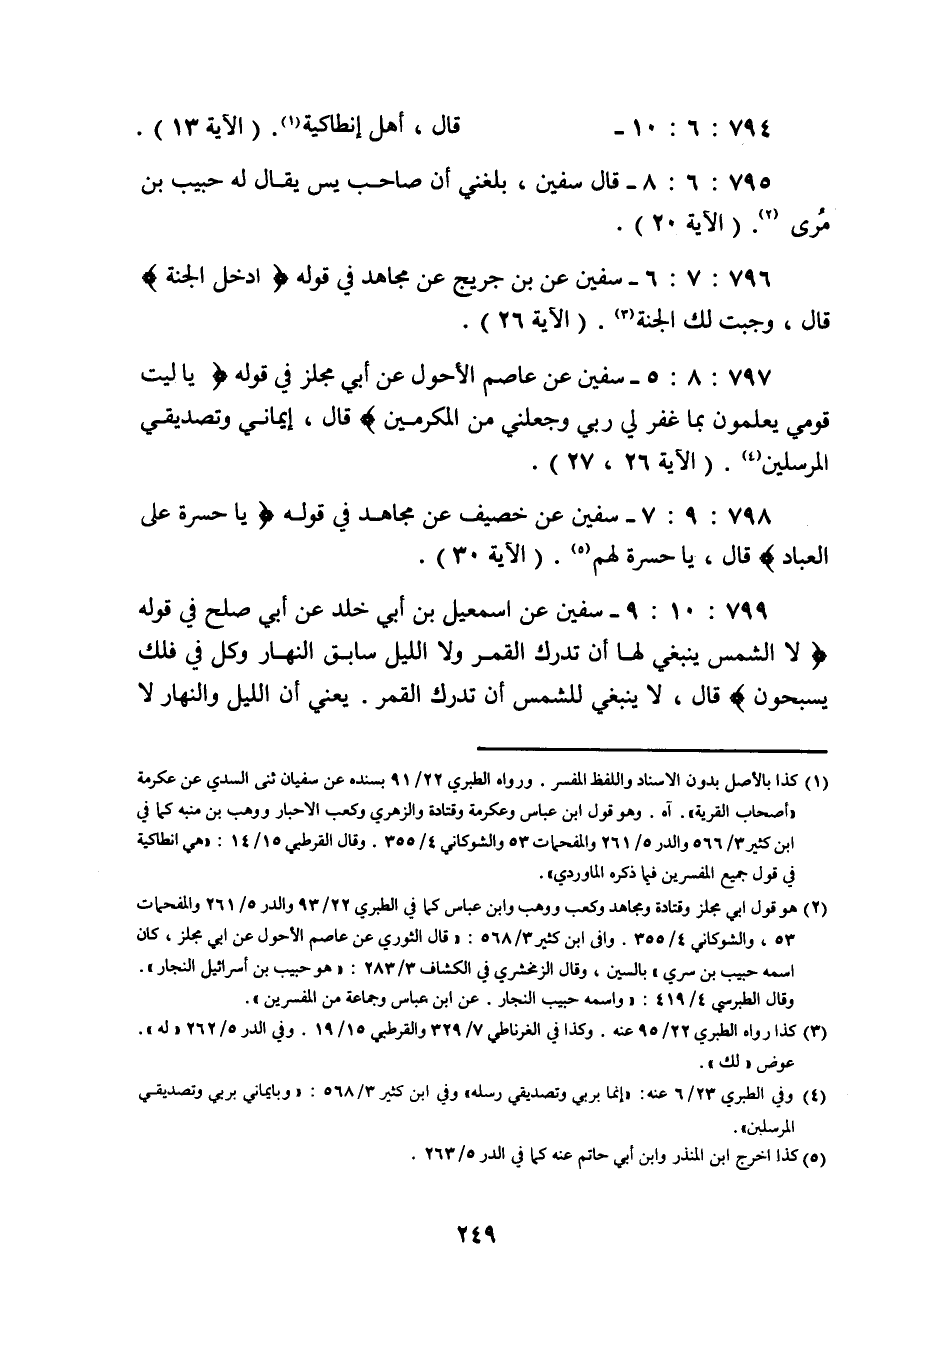 ٧٩٤ : ٦ : ١٠ ـ قال ، أهل إنطاكية(١). ( الآية ١٣ ) .
٧٩٥ : ٦ : ٨ ـ قال سفين ، بلغني أن صاحب يس يقال له حبيب بن
مُرى (٢). ( الآية ٢٠ ) .
٧٩٦ : ٧ : ٦ ـ سفين عن بن جريج عن مجاهد في قوله ﴿ ادخل الجنة ﴾
قال ، وجبت لك الجنة(٣) . ( الآية ٢٦ ) .
٧٩٧ : ٨ : ٥ ـ سفين عن عاصم الأحول عن أبي مجلز في قوله ﴿ يا ليت
قومي يعلمون بما غفر لي ربي وجعلني من المكرمين ﴾ قال ، إيماني وتصديقي
المرسلين(٤) . ( الآية ٢٦ ، ٢٧ ) .
٧٩٨ : ٩ : ٧ ـ سفين عن خصيف عن مجاهد في قوله ﴿ يا حسرة على
العباد ﴾ قال ، يا حسرة لهم(٥) . ( الآية ٣٠ ) .
٧٩٩ : ١٠ : ٩ ـ سفين عن اسمعيل بن أبي خلد عن أبي صلح في قوله
﴿ لا الشمس ينبغي لها أن تدرك القمر ولا الليل سابق النهار وكل في فلك
يسبحون ﴾ قال ، لا ينبغي للشمس أن تدرك القمر . يعني أن الليل والنهار لا
(١) كذا بالأصل بدون الاسناد واللفظ المفسر . ورواه الطبري ٢٢/ ٩١ بسنده عن سفيان ثنى السدي عن عكرمة
«أصحاب القرية». آه . وهو قول ابن عباس وعكرمة وقتادة والزهري وكعب الاحبار ووهب بن منبه كما في
ابن كثير ٣/ ٥٦٦ والدر ٥/ ٢٦١ والمفحمات ٥٣ والشوكاني ٤/ ٣٥٥ . وقال القرطبي ١٥/ ١٤ : «هي انطاكية
في قول جميع المفسرين فيما ذكره الماوردي» .
(٢) هو قول ابي مجلز وقتادة ومجاهد وكعب ووهب وابن عباس كما في الطبري ٢٢/ ٩٣ والدر ٥/ ٢٦١ والمفحمات
٥٣ ، والشوكاني ٤/ ٣٥٥ . وافى ابن كثير ٣/ ٥٦٨ : « قال الثوري عن عاصم الأحول عن ابي مجلز ، كان
اسمه حبيب بن سري » بالسين ، وقال الزمخشري في الكشاف ٣/ ٢٨٣ : « هو حبيب بن أسرائيل النجار » .
وقال الطبرسي ٤/ ٤١٩ : « واسمه حبيب النجار . عن ابن عباس وجماعة من المفسرين » .
(٣) كذا رواه الطبري ٢٢/ ٩٥ عنه . وكذا في الغرناطي ٧/ ٣٢٩ والقرطبي ١٥/ ١٩ . وفي الدر ٥/ ٢٦٢ « له » .
عوض « لك » .
(٤) وفي الطبري ٢٣/ ٦ عنه : «إنما بربي وتصديقي رسله» وفي ابن كثير ٣/ ٥٦٨ : « وبايماني بربي وتصديقي
المرسلين» .
(٥) كذا اخرج ابن المنذر وابن أبي حاتم عنه كما في الدر ٥/ ٢٦٣ .
٢٤٩